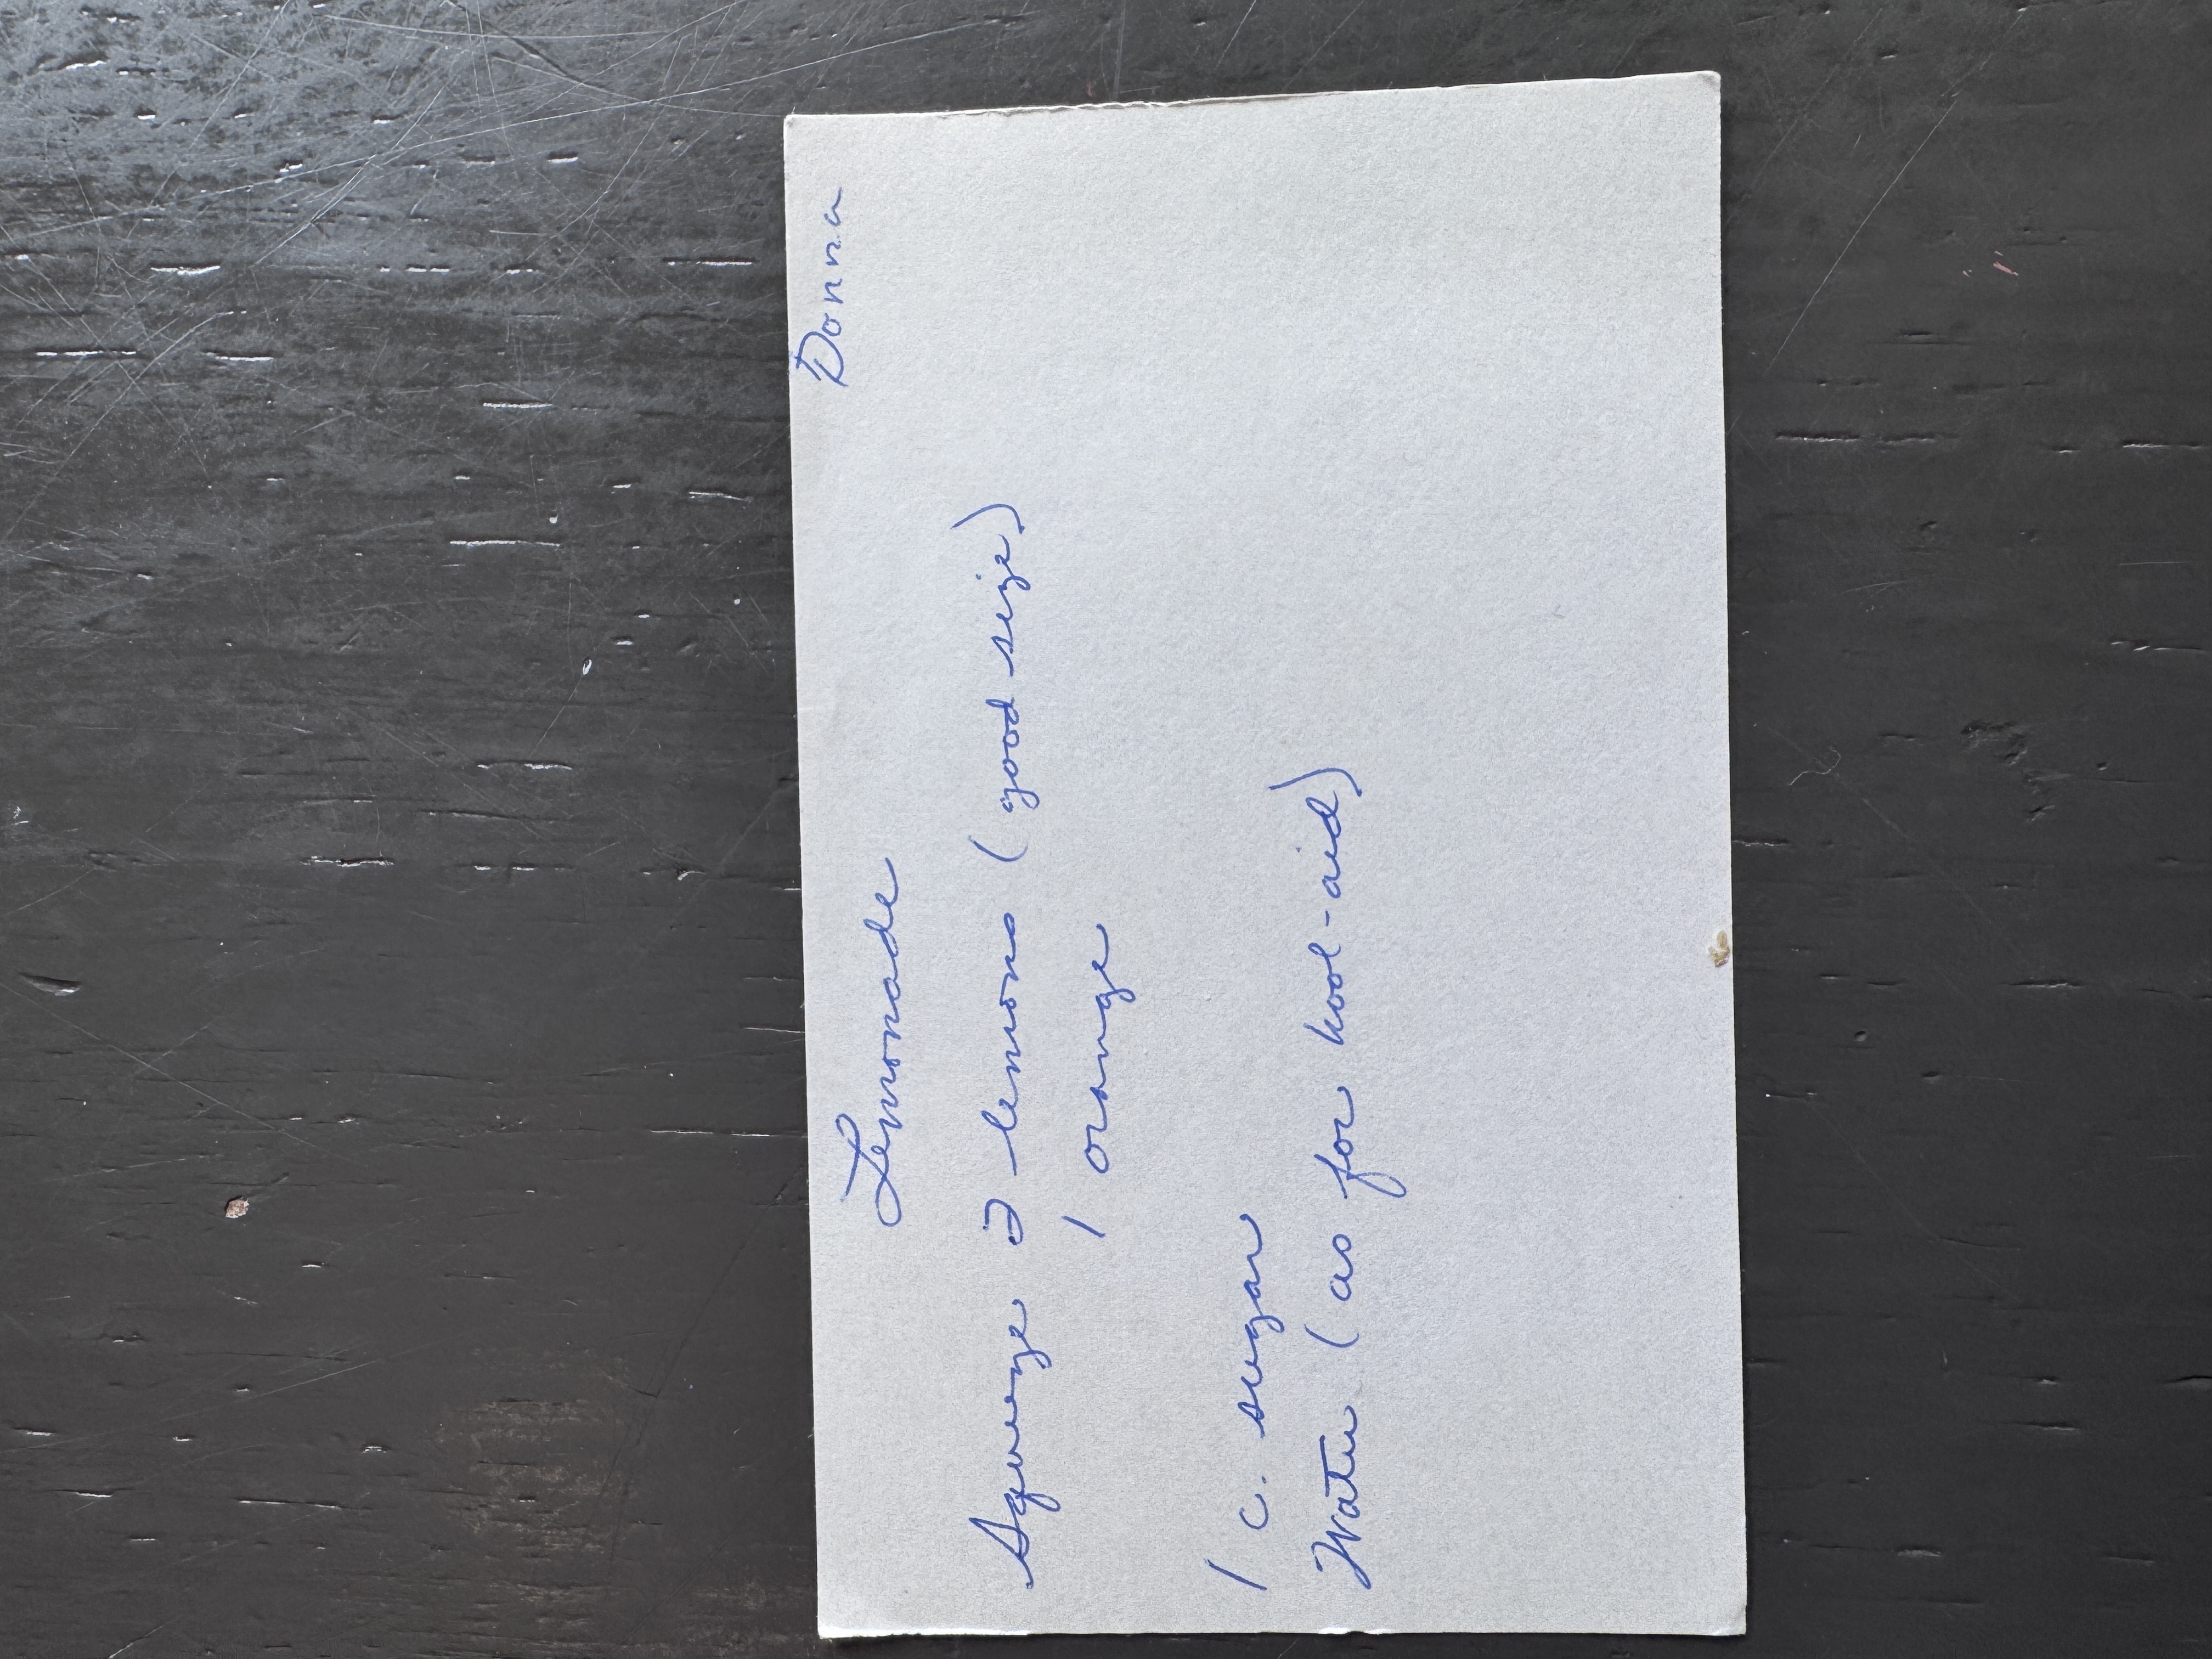 Donna
Lemonade
Squeeze 2 lemons (good size)
1 orange
1 c. sugar
Water (as for kool-aid)